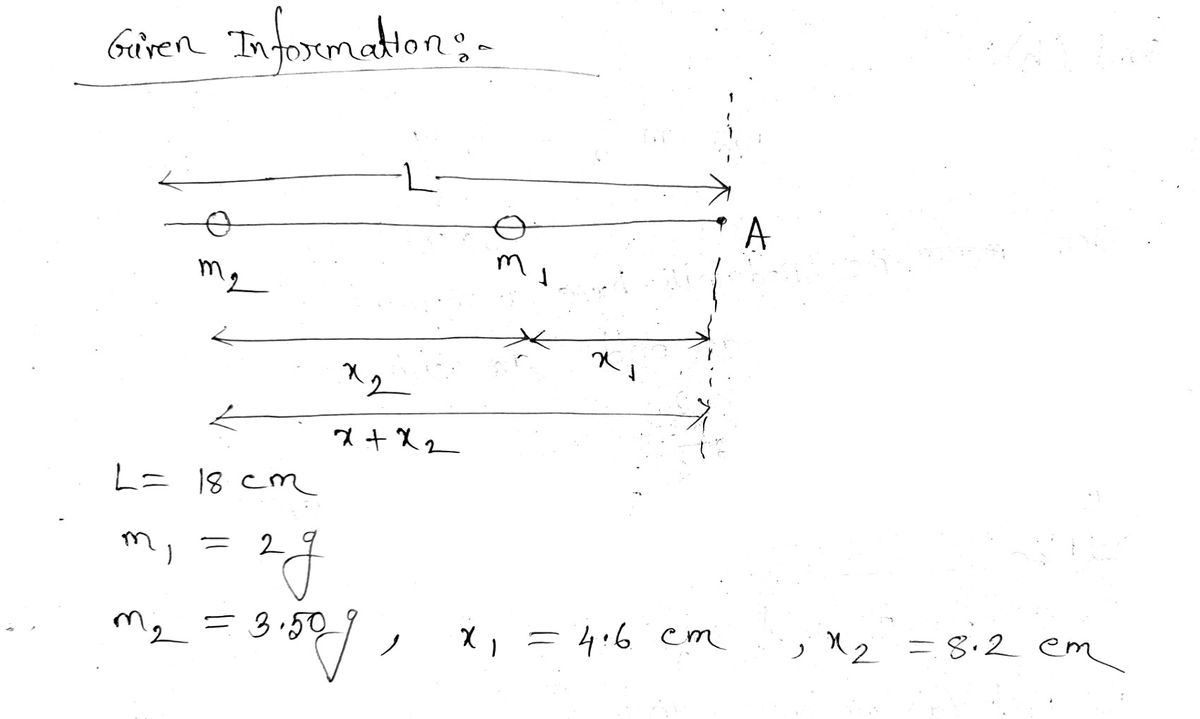 Given Information:-
L
A
m₂ m₁
x₂ x₁
x + x₂
L = 18 cm
m₁ = 2g
m₂ = 3.50g, x₁ = 4.6 cm , x₂ = 8.2 cm